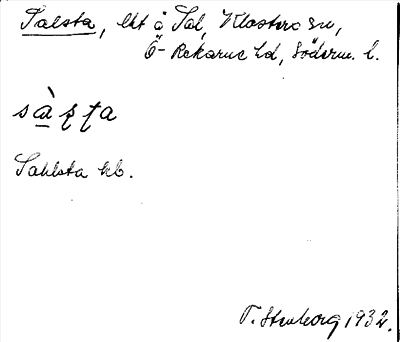 Salsta, lht å Sal, Klosters sn,
Ö-Rekarne hd, Söderm. l.
sàʂʈa
Sahlsta kb.
T. Stenborg 1932.